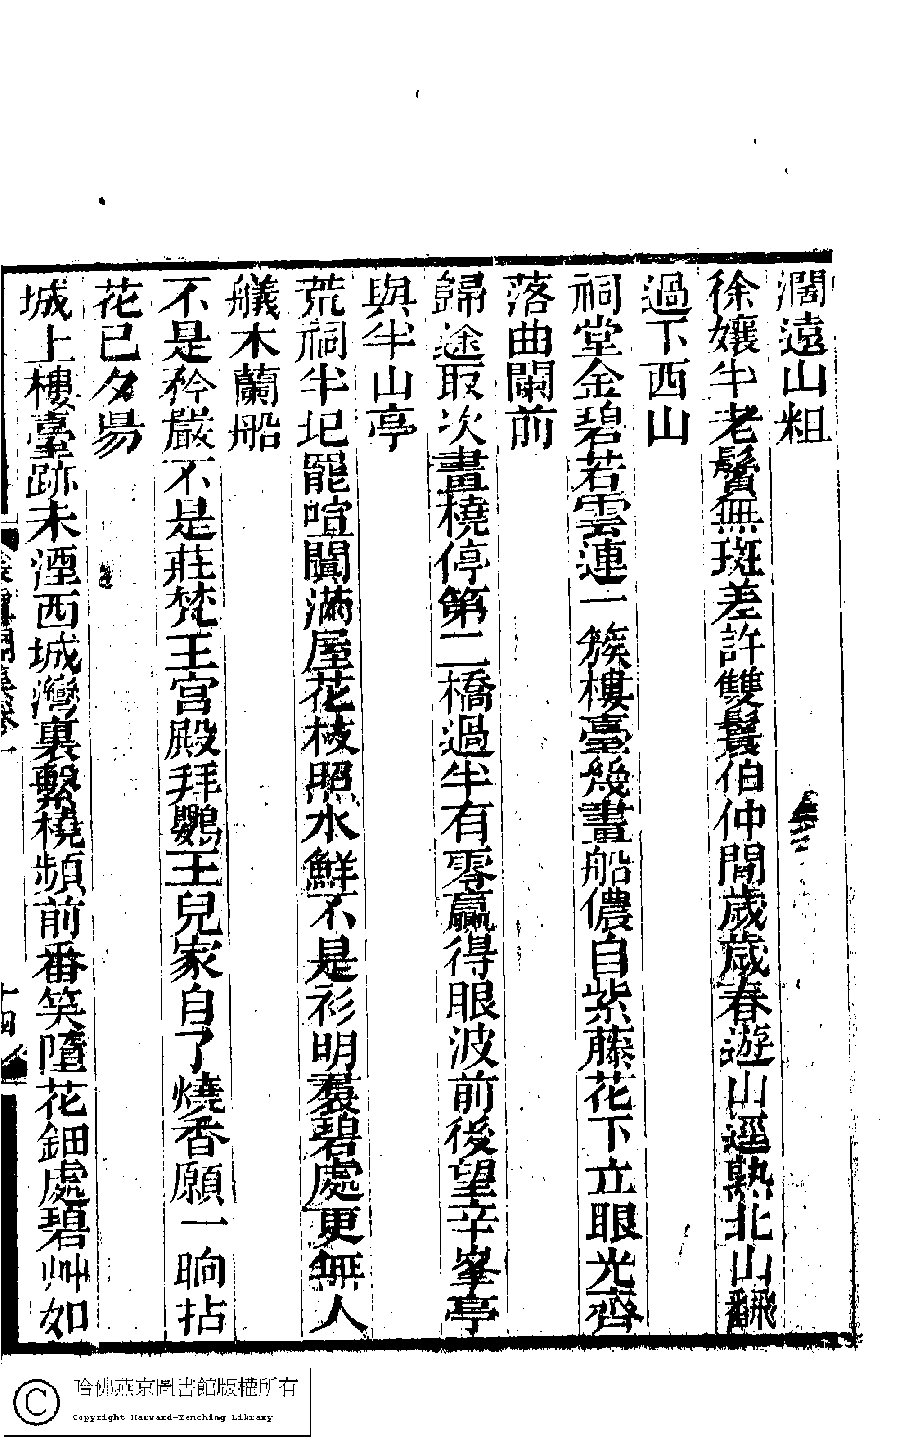 濶遠山粗
徐孃半老鬢無斑差許雙鬟伯仲間歲歲春遊山逕熟北山飜
過下西山
祠堂金碧若雲連一簇樓臺幾畫船儂自紫藤花下立眼光齊
落曲闌前
歸途取次畫橈停第二橋過半有零贏得眼波前後望辛峯亭
與半山亭
荒祠半圮罷喧闐滿屋花枝照水鮮不是衫明裠碧處更無人
艤木蘭船
不是矜嚴不是莊梵王宮殿拜鸚王兒家自了燒香願一晌拈
花已夕昜
城上樓臺跡未湮西城灣裏繫橈頻前番笑墮花鈿處碧艸如
十四
哈佛燕京圖書館版權所有
Copyright Harvard-Yenching Library